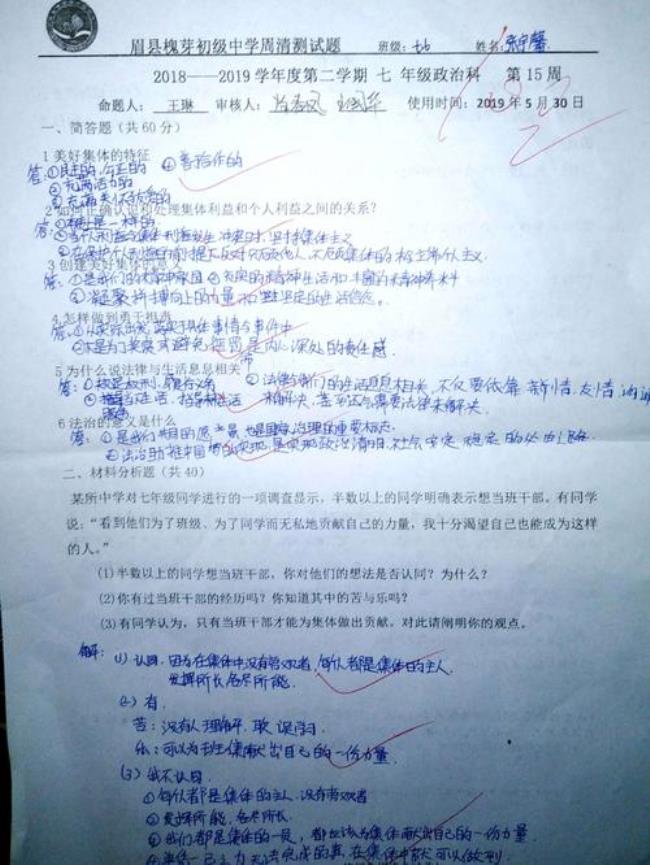 眉县槐芽初级中学周清测试题 班级：七6 姓名：张宇馨
2018——2019学年度第二学期 七 年级政治科 第15周
命题人：王琳 审核人： 使用时间：2019年5月30日
一、简答题（共60分）
1美好集体的特征
答：①民主的、公正的 ④善于合作的
②充满活力的
③充满关怀
2如何正确认识和处理集体利益和个人利益之间的关系？
答：①
②当个人利益与集体利益发生冲突时，坚持集体主义
③
3创建美好集体的意义
答：①是我们的精神家园 ②充实的精神生活和丰富的精神养料
③凝聚拼搏向上的力量和
4怎样做到勇于担当
答：①从实际出发，落实到具体事情与事件中
②不是为了奖赏或避免惩罚，是内心深处的责任感．
5为什么说法律与生活息息相关
答：① ②法律与我们的生活息息相关，不仅要依靠亲情、友情
来解决，甚至还需要法律来解决．
6法治的意义是什么
答：①是我们共同的愿景，也是国家治理的重要标志．
②法治助推中国梦的实现，是实现政治清明、社会 稳定的必由之路．
二、材料分析题（共40）
某所中学对七年级同学进行的一项调查显示，半数以上的同学明确表示想当班干部。有同学
说：“看到他们为了班级、为了同学而无私地贡献自己的力量，我十分渴望自己也能成为这样
的人。”
(1)半数以上的同学想当班干部，你对他们的想法是否认同？为什么？
(2)你有过当班干部的经历吗？你知道其中的苦与乐吗？
(3)有同学认为，只有当班干部才能为集体做出贡献。对此请阐明你的观点。
解：(1)认同．因为在集体中没有旁观者，每个人都是集体的主人．
发挥所长各尽所能．
(2)有．
苦：没有人理解．
乐：可以为班集体献出自己的一份力量．
(3)我不认同．
①每个人都是集体的主人．没有旁观者
②发挥所能，各尽所长．
③我们都是集体的一员，都应该为集体献出自己的一份力量．